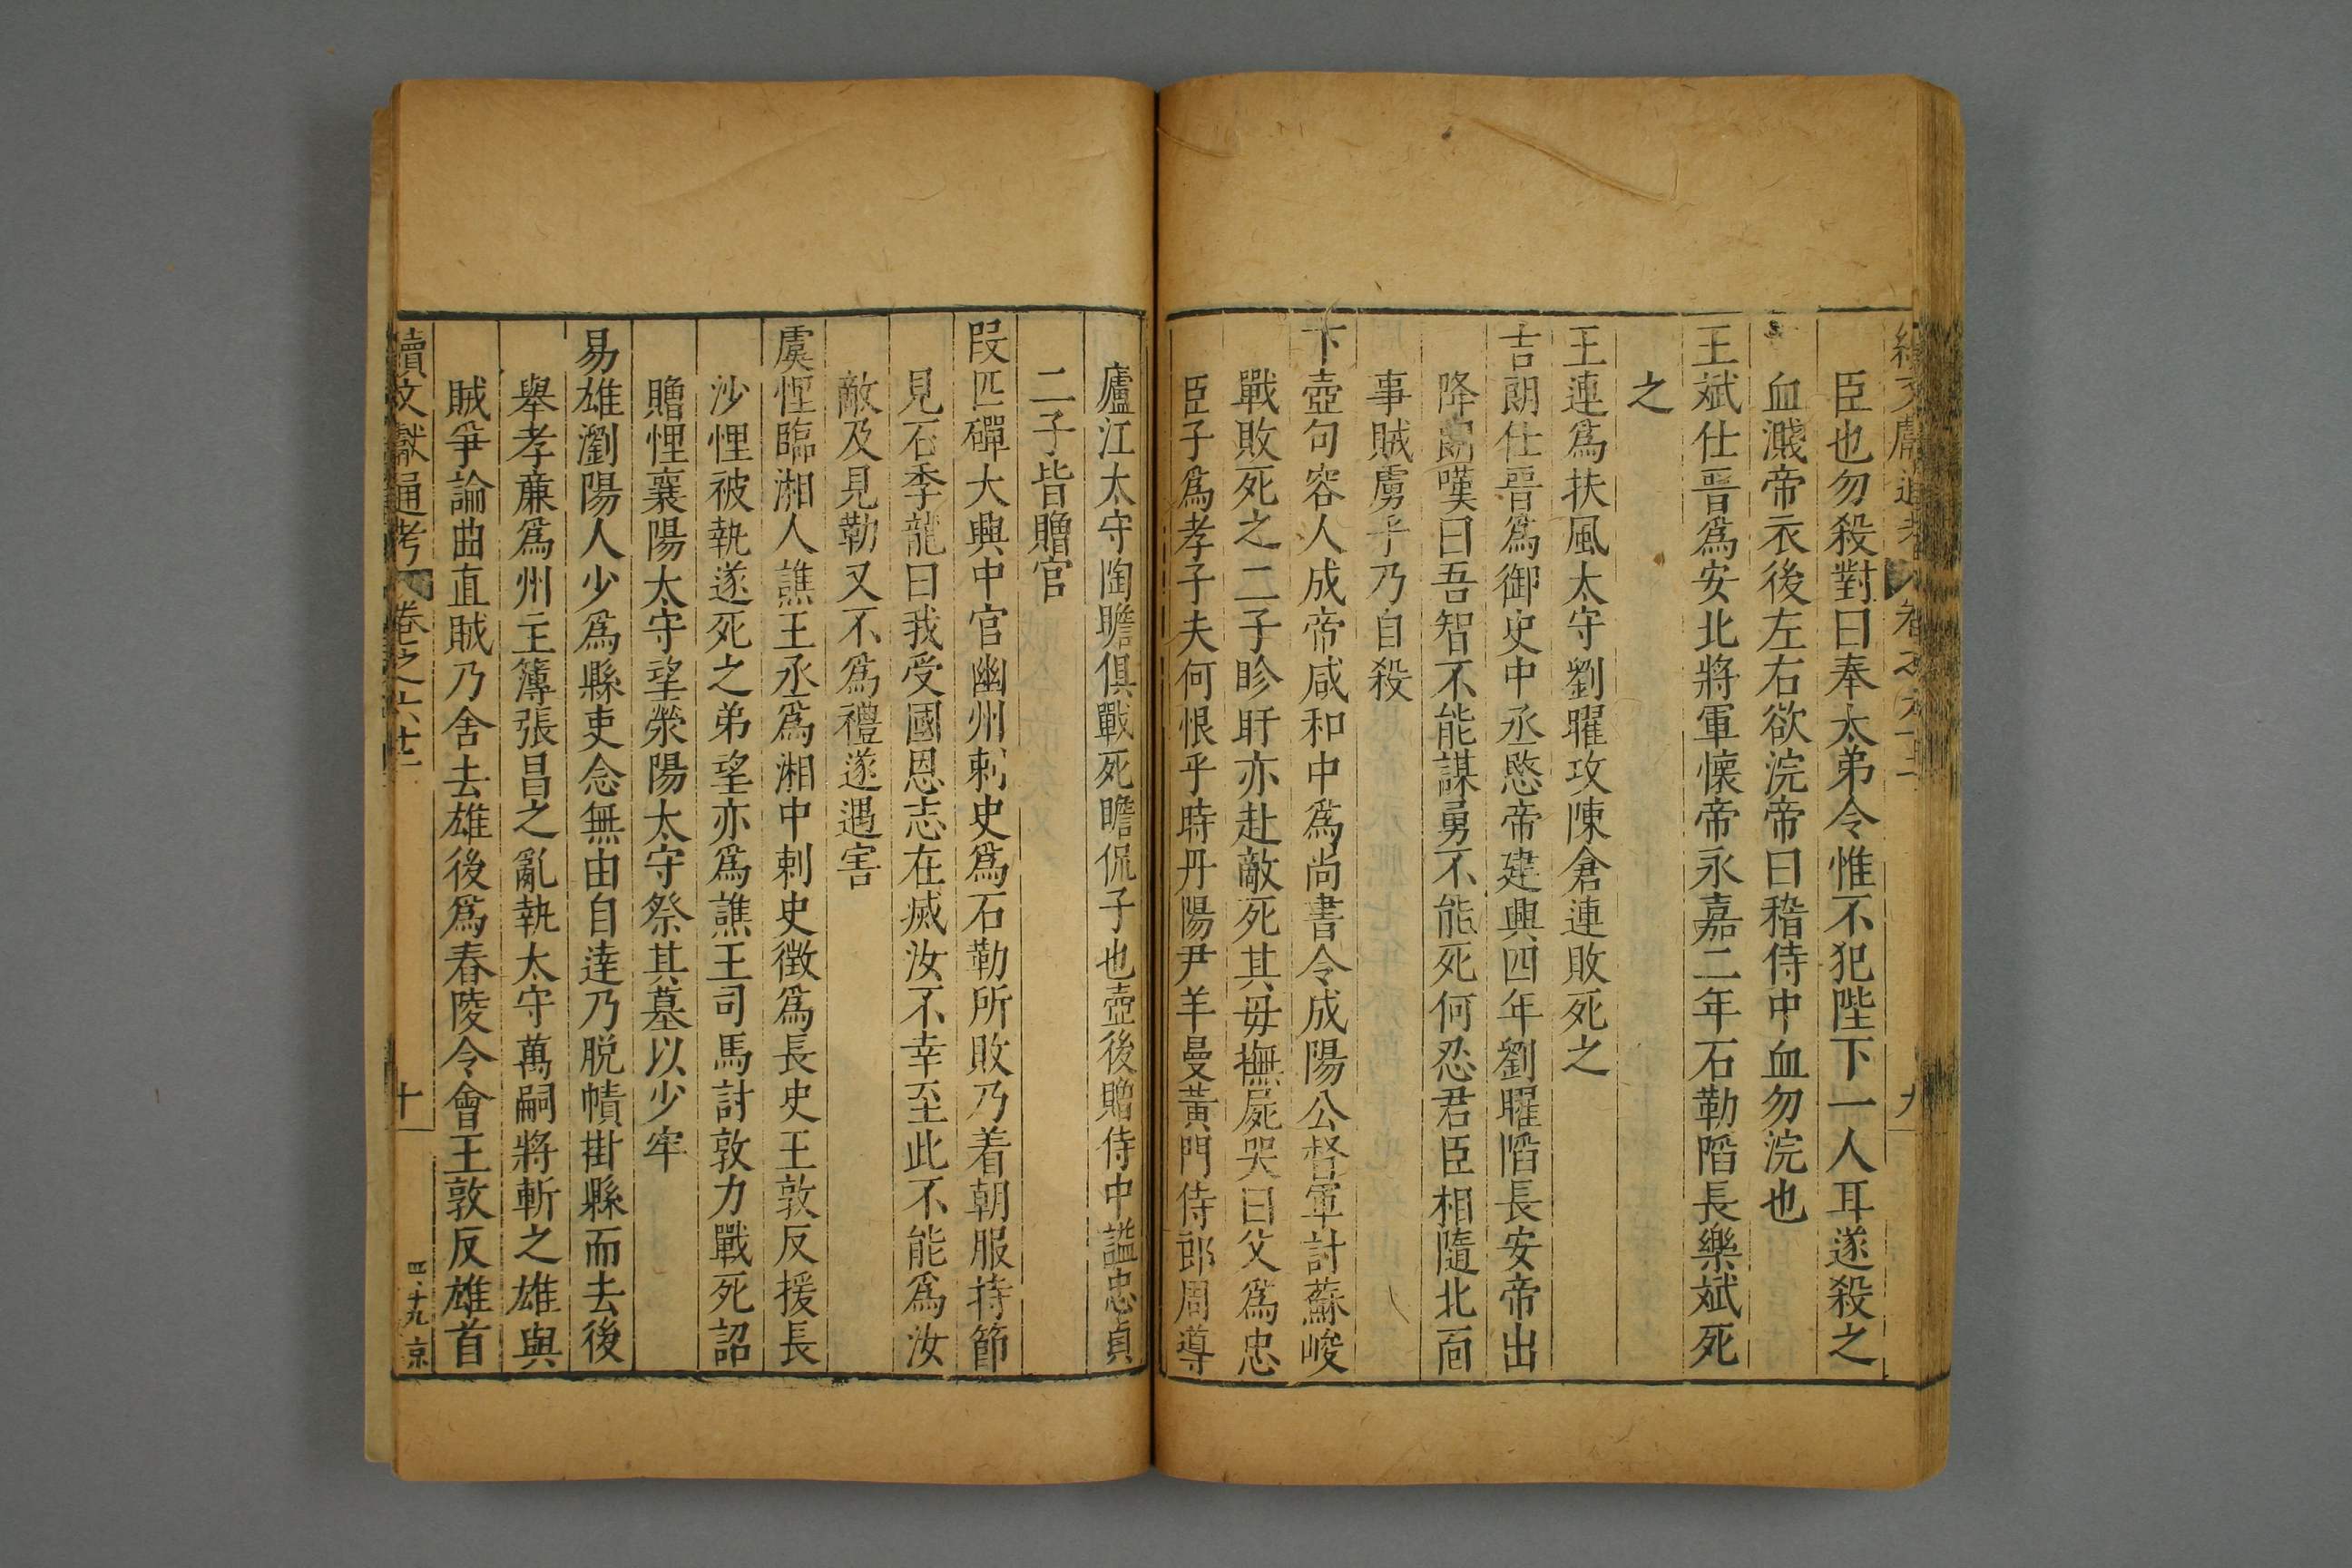 臣也勿殺對曰奉太弟令惟不犯陛下一人耳遂殺之
血濺帝衣後左右欲浣帝曰稽侍中血勿浣也
王斌仕晉爲安北將軍懷帝永嘉二年石勒陷長樂斌死
之
王連爲扶風太守劉曜攻陳倉連敗死之
吉朗仕晉爲御史中丞愍帝建興四年劉曜陷長安帝出
降朗嘆曰吾智不能謀勇不能死何忍君臣相隨北面
事賊虜乎乃自殺
卞壺句容人成帝咸和中爲尚書令成陽公督軍討蘇峻
戰敗死之二子眕盱亦赴敵死其母撫屍哭曰父爲忠
臣子爲孝子夫何恨乎時丹陽尹羊曼黃門侍郎周導
廬江太守陶瞻俱戰死瞻侃子也壺後贈侍中謚忠貞
二子皆贈官
段匹磾大興中官幽州刺史爲石勒所敗乃着朝服持節
見石季龍曰我受國恩志在滅汝不幸至此不能爲汝
敵及見勒又不爲禮遂遇害
虞悝臨湘人譙王丞爲湘中刺史徵爲長史王敦反援長
沙悝被執遂死之弟望亦爲譙王司馬討敦力戰死詔
贈悝襄陽太守望滎陽太守祭其墓以少牢
易雄瀏陽人少爲縣吏念無由自達乃脱幘掛縣而去後
舉孝亷爲州主簿張昌之亂執太守萬嗣將斬之雄與
賊爭論曲直賊乃舍去雄後爲舂陵令會王敦反雄首
續文獻通考 卷之六十二 十 四·十九 京